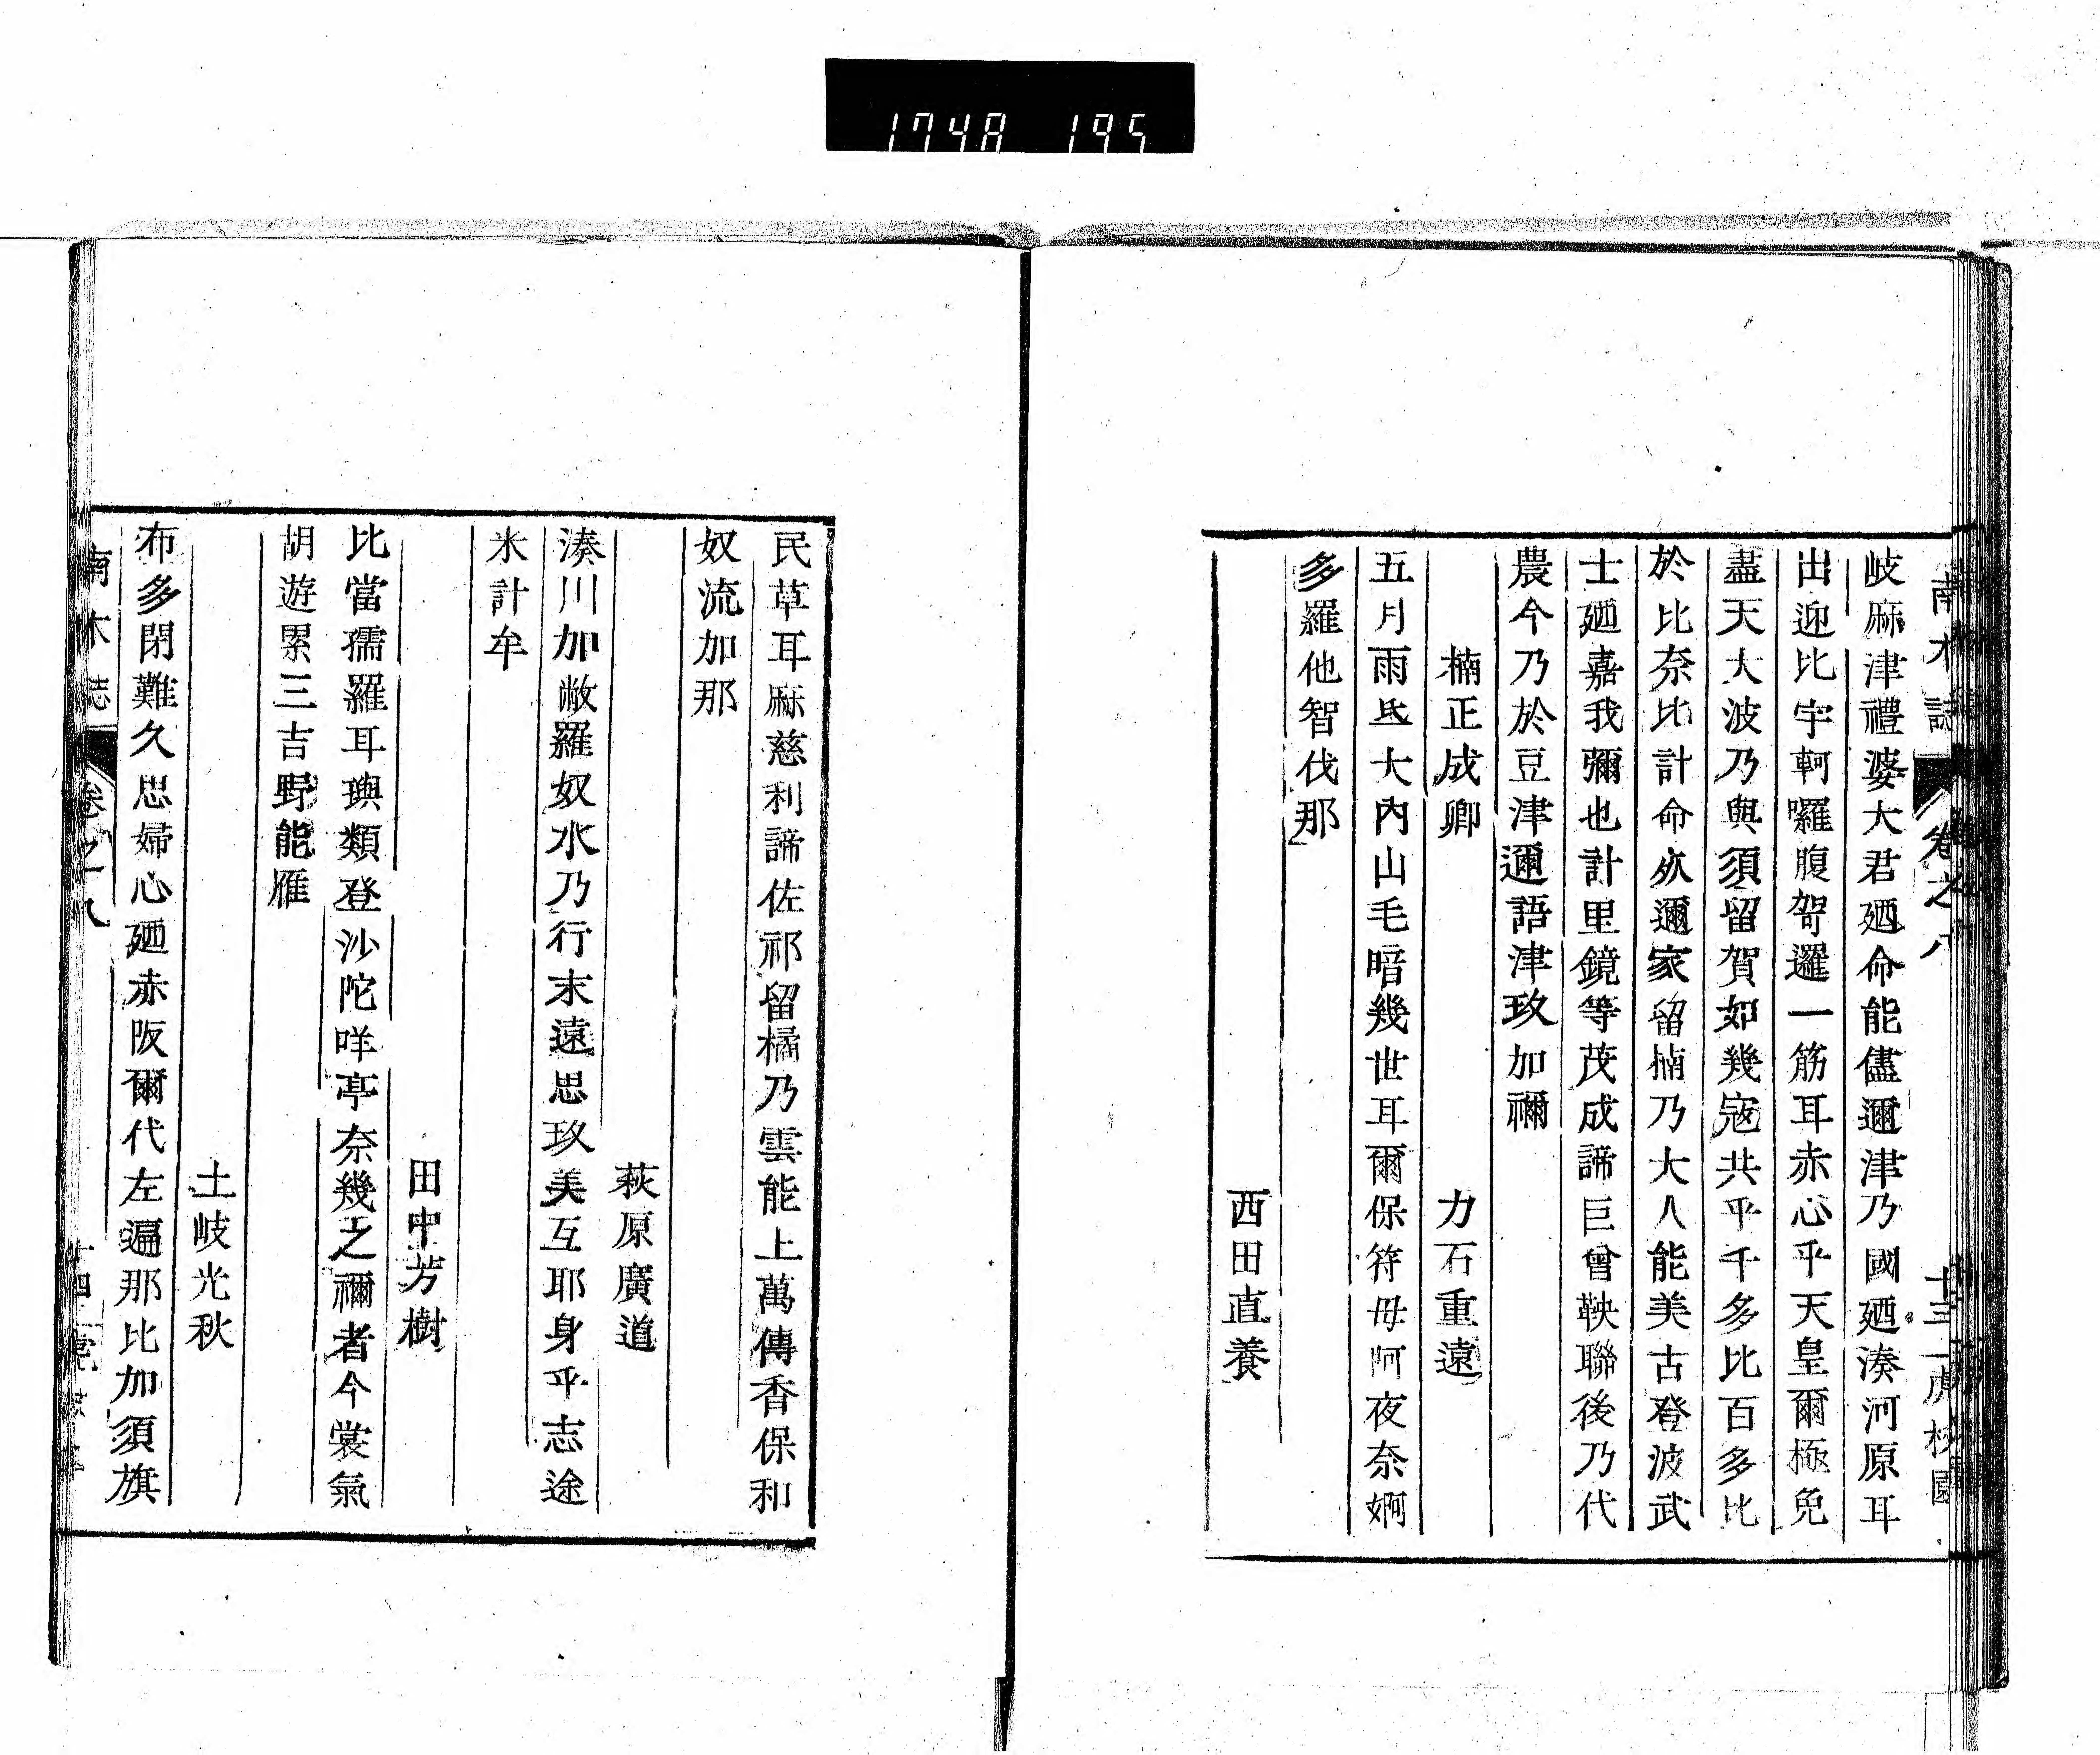 1748 195
南木誌 卷之八 十三
岐麻津禮婆大君廼命能儘邇津乃國廼湊河原耳
出迎比宇軻囉腹哿邏一筋耳赤心乎天皇爾極免
盡天大波乃與須留賀如幾寇共乎千多比百多比
於比奈比計命 邇家留楠乃大人能美古登波武
士廼嘉我彌也計里鏡等茂成諦巨曾鞅聯後乃代
農今乃於豆津邇語津玖加禰
楠正成卿 力石重遠
五月雨氐大內山毛暗幾世耳爾保符毋阿夜奈婀
多羅他智伐那
西田直養
民草耳麻慈利諦佐祁留橘乃雲能上萬傳香保和
奴流加那
萩原廣道
湊川加敝羅奴水乃行末遠思玖美互耶身乎志途
米計牟
田中芳樹
比當孺羅耳璵類登沙陀咩亭奈幾乏禰者今裳氣
胡遊累三吉野能雁
土岐光秋
布多閉難久思婦心廼赤阪爾代左遍那比加須旗
南木誌 卷之八